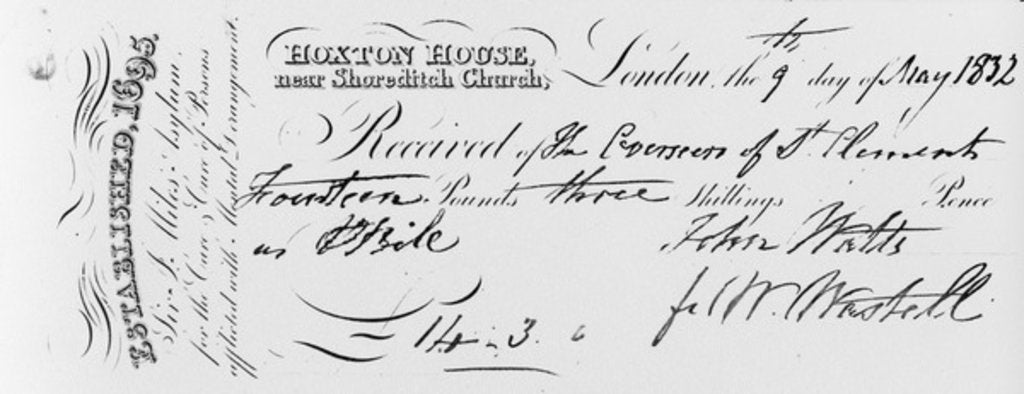 ESTABLISHED, 1695.
Sir J. Miles' Asylum.
for the Care & Cure of Persons
afflicted with Mental Derangement.
HOXTON HOUSE,
near Shoreditch Church,
London, the 9th day of May 1832
Received of the Overseers of St Clements
Fourteen Pounds three Shillings Pence
as Bile
John Watts
W. Wastell
14 - 3